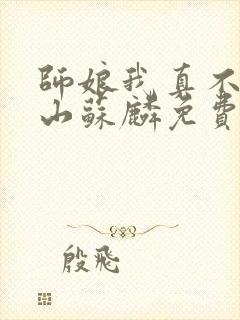 師娘我真不
山蘇麟免費
殷飛